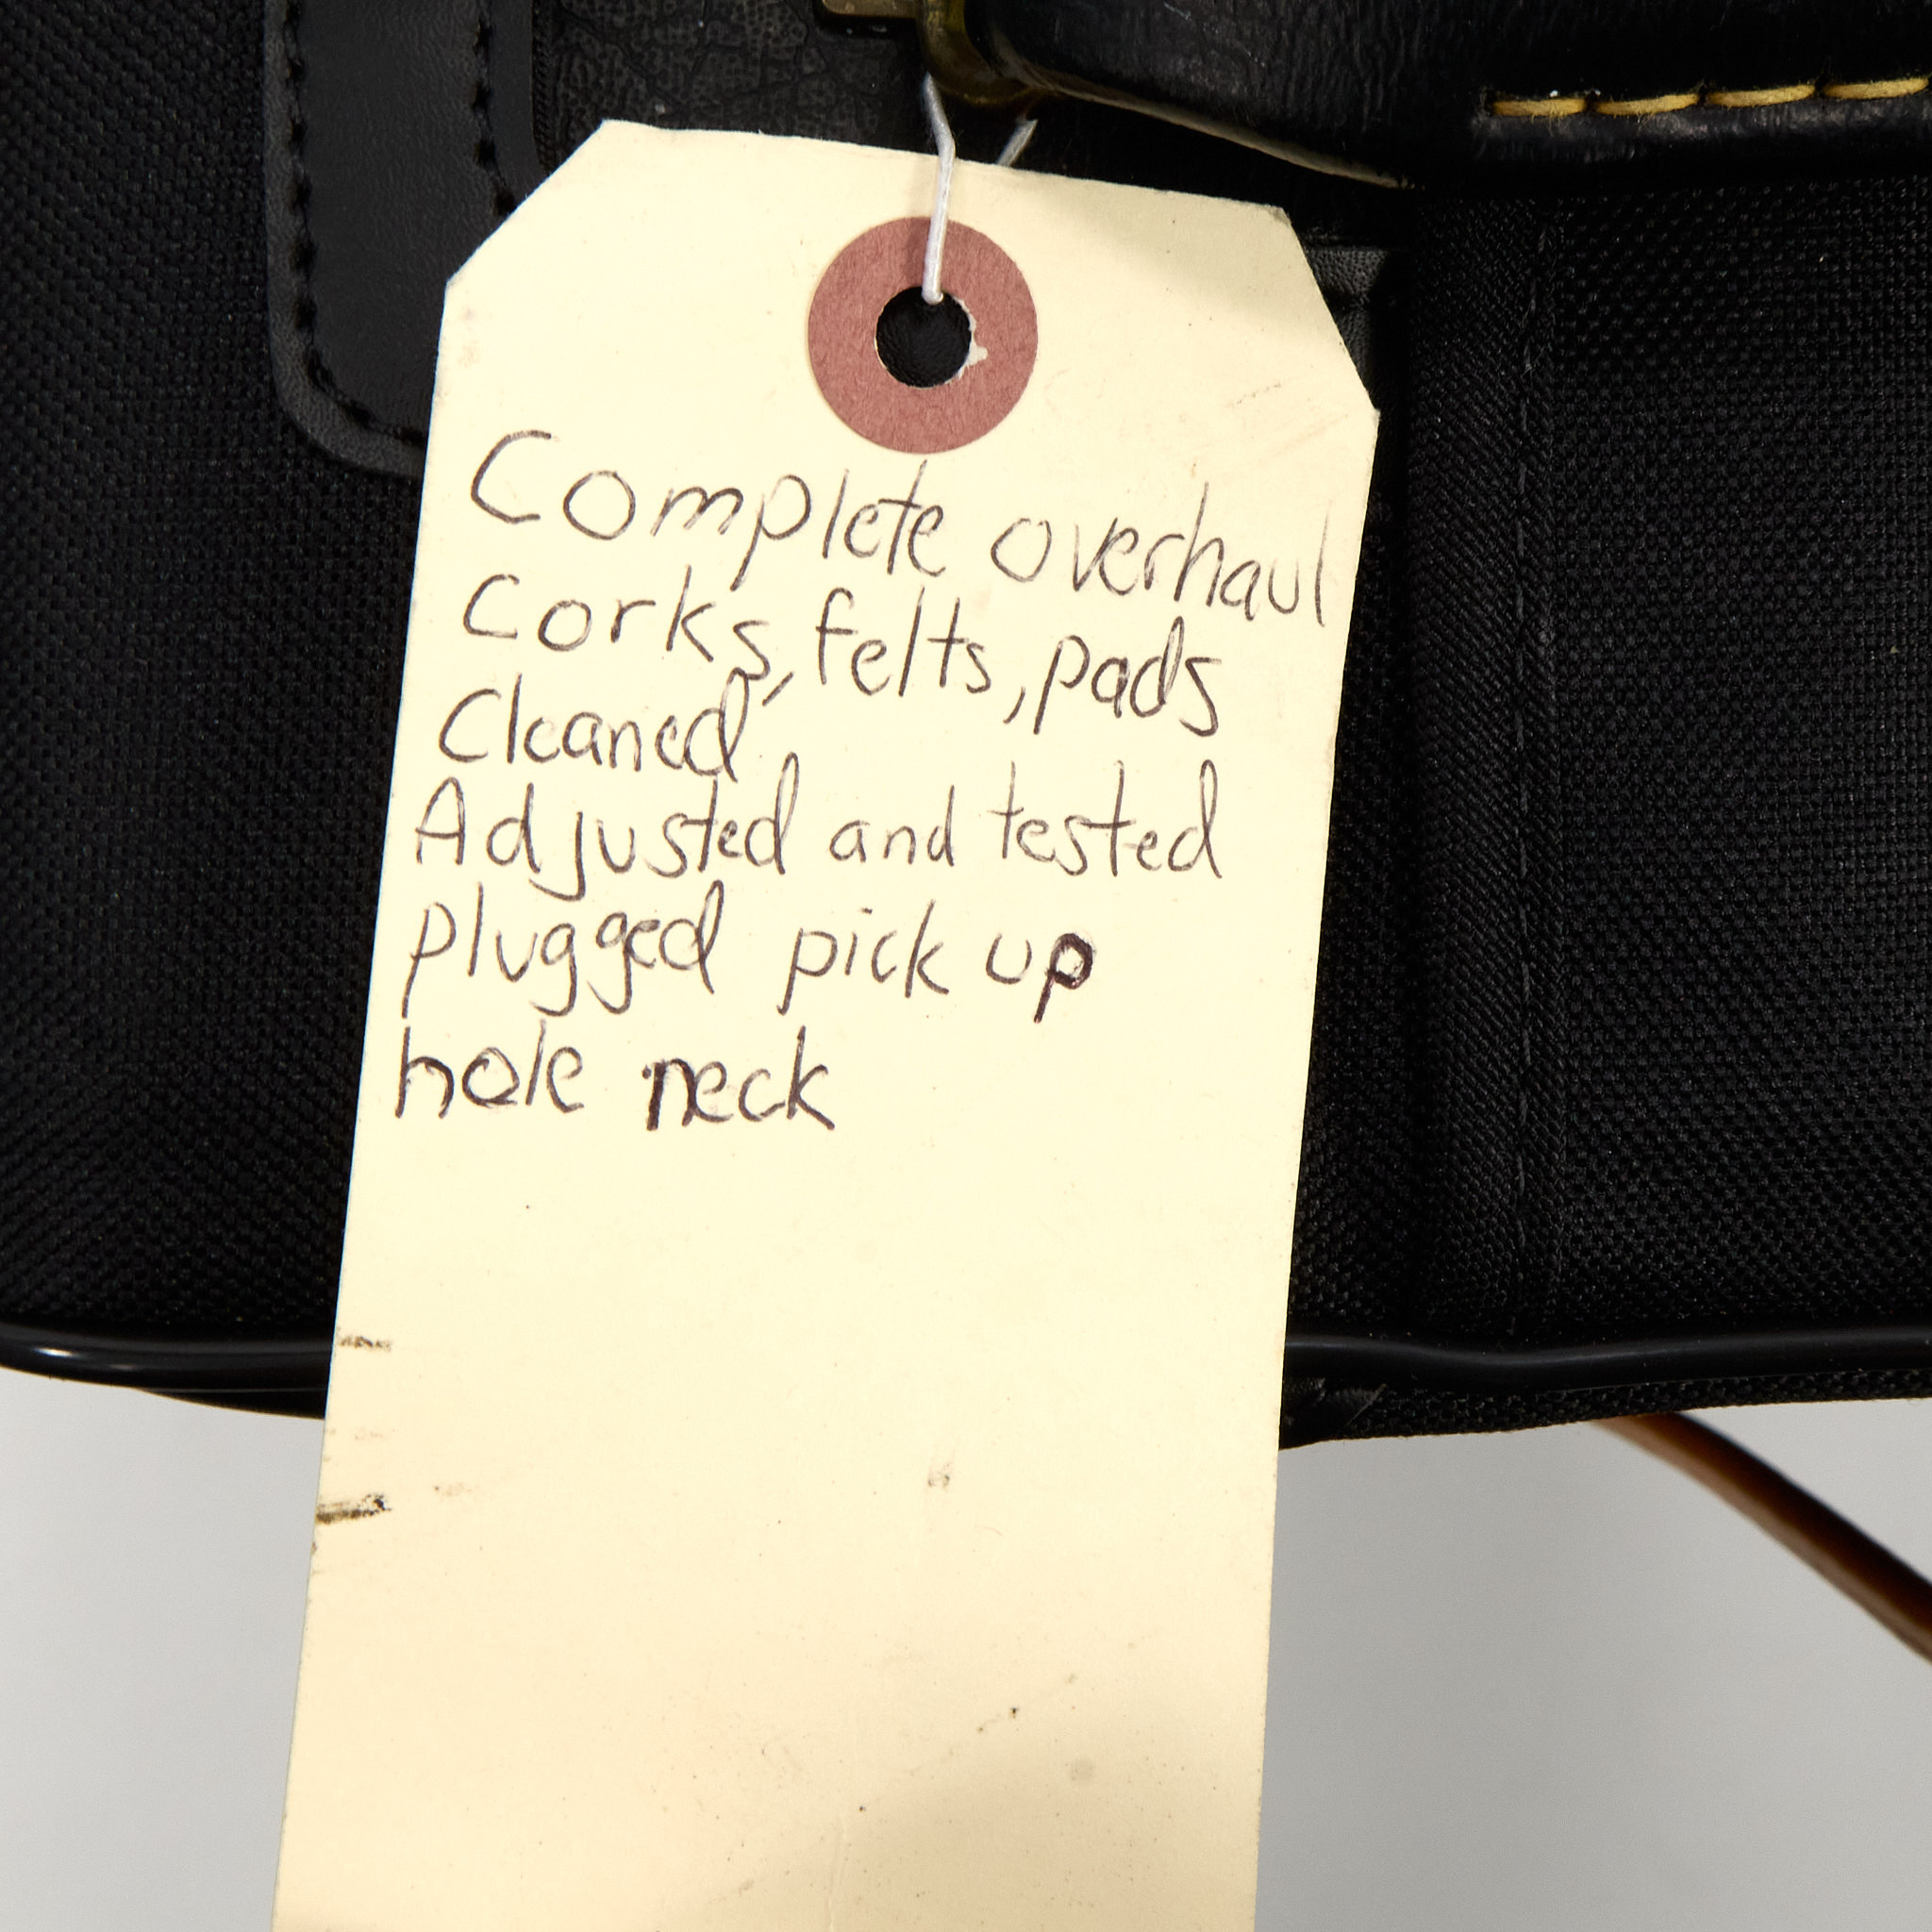 Complete overhaul
Corks, felts, pads
Cleaned
Adjusted and tested
plugged pick up
hole neck